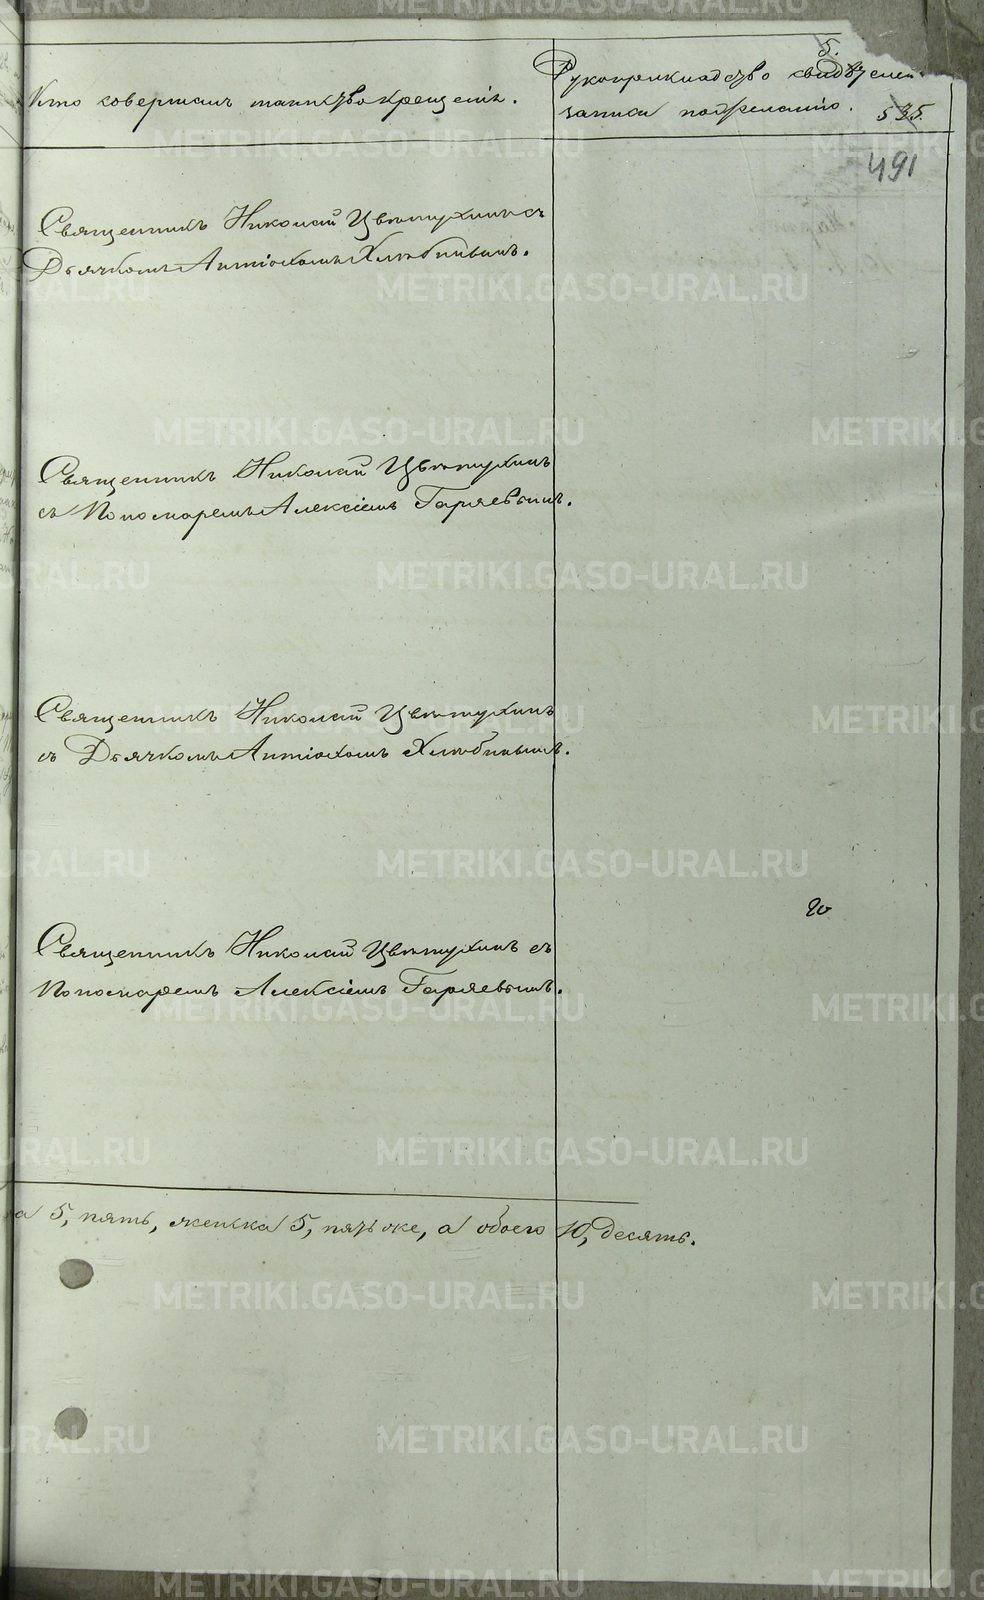 5.
Кто совершалъ таинство крещенія.
Рукоприкладство свидѣтелей
записи по желанію.
535.
491
Священникъ Николай Цвѣтухинъ съ
Дьячкомъ Антіохомъ Хлыбинымъ.
Священникъ Николай Цвѣтухинъ
съ Пономаремъ Алексіемъ Гаряевымъ.
Священникъ Николай Цвѣтухинъ
съ Дьячкомъ Антіохомъ Хлыбинымъ.
Священникъ Николай Цвѣтухинъ съ
Пономаремъ Алексіемъ Гаряевымъ.
а 5, пять, женска 5, пять же, а обоего 10, десять.
METRIKI.GASO-URAL.RU